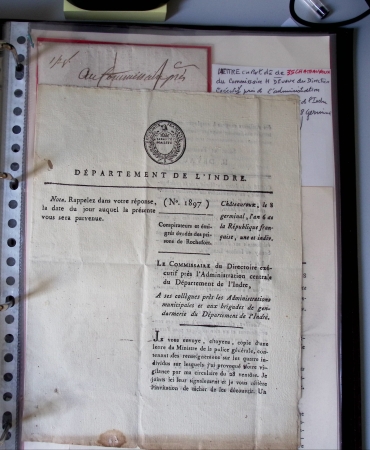 au Commissaire près
LETTRE ... de CHATEAUROUX
du Commissaire H DEVAUX du Directoire
Exécutif près de l'administration
de l'Indre
8 Germinal
DÉPARTEMENT DE L'INDRE.
Nota. Rappelez dans votre réponse,
la date du jour auquel la présente
vous sera parvenue.
(No. 1897)
Conspirateurs et émi-
grés évadés des pri-
sons de Rochefort.
Châteauroux, le 8
germinal, l'an 6 de
la République fran-
çaise, une et indiv.
LE COMMISSAIRE du Directoire exé-
cutif près l'Administration centrale
du Département de l'Indre,
A ses collègues près les Administrations
municipales et aux brigades de gen-
darmerie du Département de l'Indre.
JE vous envoye, citoyens, copie d'une
lettre du Ministre de la police générale, con-
tenant des renseignemens sur les quatre in-
dividus sur lesquels j'ai provoqué votre vi-
gilance par ma circulaire du 28 ventôse. Je
joins ici leur signalement et je vous réitère
l'invitation de tâcher de les découvrir. Un